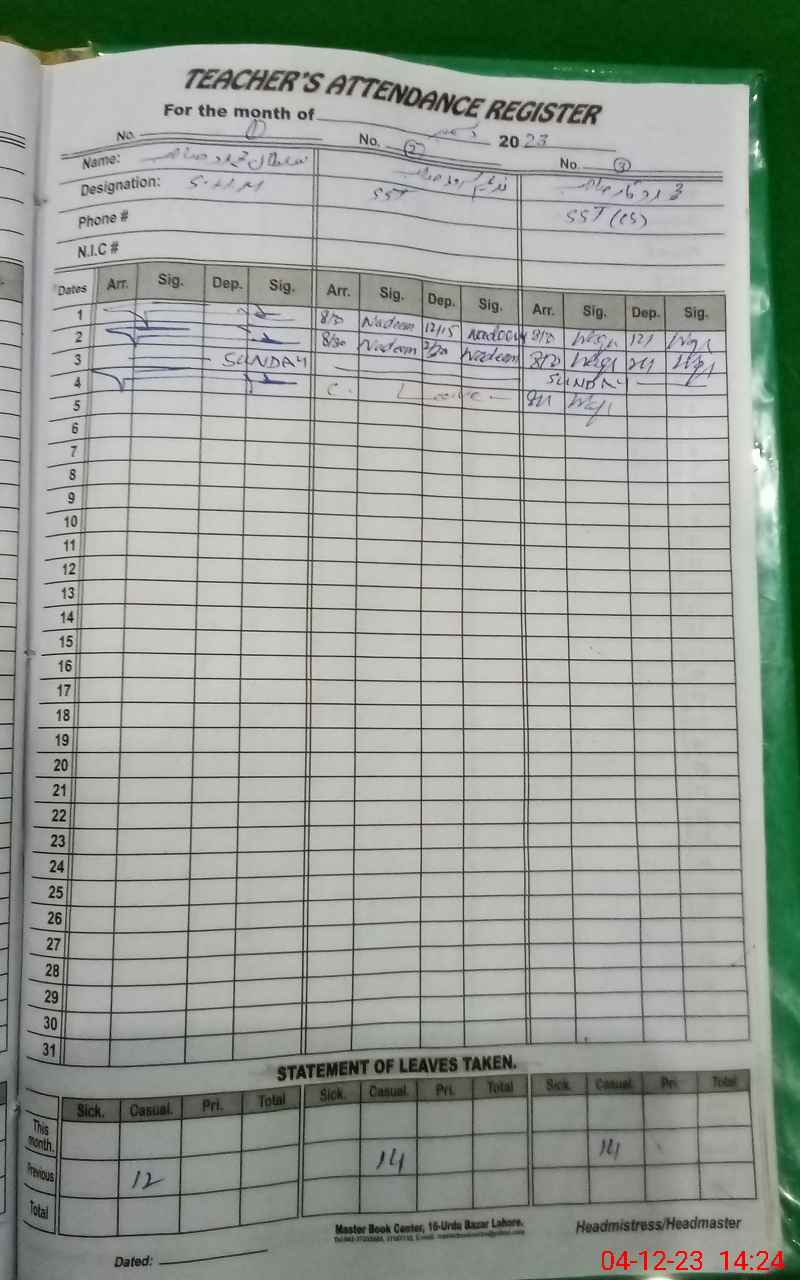 TEACHER'S ATTENDANCE REGISTER
For the month of دسمبر 2023
No. 1 No. 2 No. 3
Name: سلطان محمود صاحب
Designation: SST SST (CS)
Phone #
N.I.C #
Dates Arr. Sig. Dep. Sig. Arr. Sig. Dep. Sig. Arr. Sig. Dep. Sig.
1 Nadeem 12/15 Nadeem
2 8/30 Nadeem Nadeem
3 SUNDAY SUNDAY
4 C. Leave
5
6
7
8
9
10
11
12
13
14
15
16
17
18
19
20
21
22
23
24
25
26
27
28
29
30
31
STATEMENT OF LEAVES TAKEN.
Sick. Casual. Pri. Total Sick. Casual. Pri. Total Sick. Casual. Pri. Total
This month.
Previous 12 14 14
Total
Master Book Center, 16-Urdu Bazar Lahore.
Headmistress/Headmaster
Dated:
04-12-23 14:24